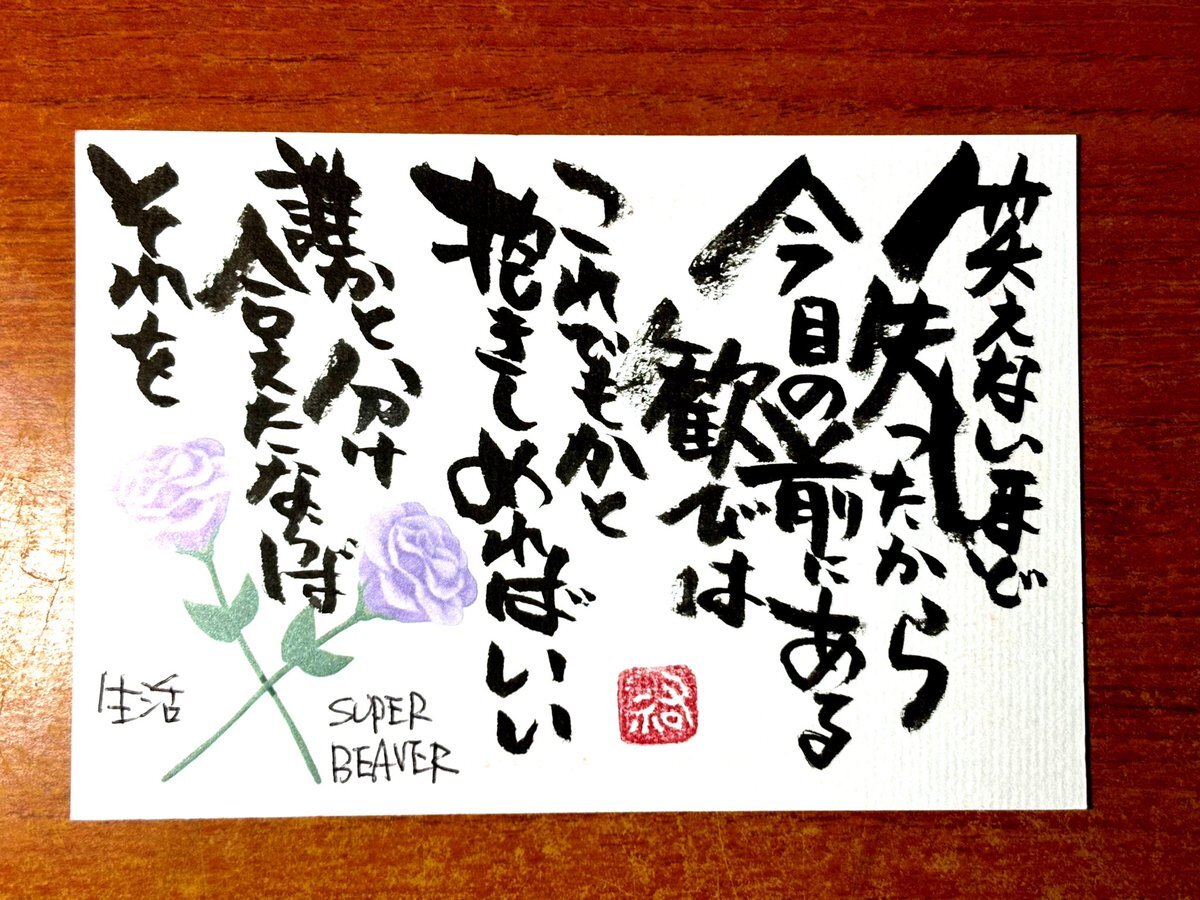 笑えないほど
失ったから
今目の前にある
歓びは
これでもかと
抱きしめればいい
誰かと分け
合えたならば
それを
生活
SUPER
BEAVER